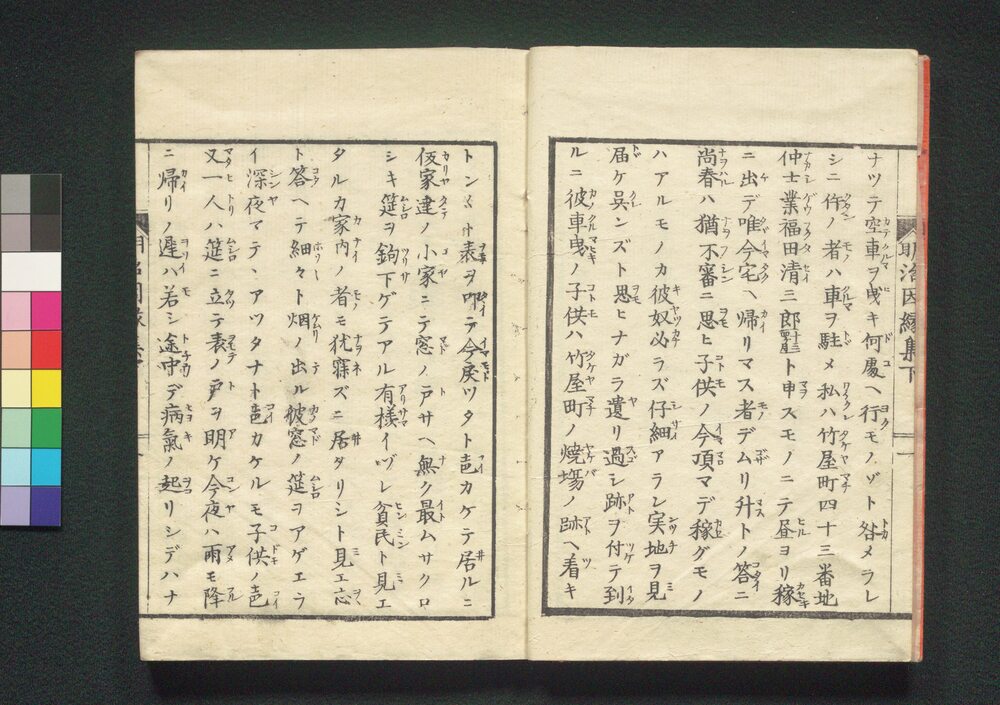 ナツテ空車ヲ曳キ何處ヘ行モノゾト咎メラレ
シニ件ノ者ハ車ヲ駐メ私ハ竹屋町四十三番地
仲士業福田清三郎ト申スモノニテ昼ヨリ稼
ニ出デ唯今宅ヘ帰リマス者デムリ升トノ答ニ
尚春ハ猶不審ニ思ヒ子供ノ今頃マデ稼グモノ
ハアルモノカ彼奴必ラズ仔細アラレ実地ヲ見
届ケ呉ンズト思ヒナガラ遣リ過シ跡ヲ付テ到
ルニ彼車曳ノ子供ハ竹屋町ノ焼塲ノ跡ヘ着キ
明治因縁集下
トン〱ト表ヲ叩テ今戻ツタト声カケテ居ルニ
仮家建ノ小家ニテ窓ノ戸サヘ無ク最ムサクロ
シキ筵ヲ鉤下ゲテアル有様イヅレ貧民ト見エ
タルカ家内ノ者モ犹寐ズニ居タリシト見エ応
ト答ヘテ細々ト烟ノ出ル彼窓ノ筵ヲアゲエラ
イ深夜マテ、アツタナト声カケルモ子供ノ声
又一人ハ筵ニ立テ表ノ戸ヲ明ケ今夜ハ雨モ降
ニ帰リノ遅ハ若シ途中デ病氣ノ起リシデハナ